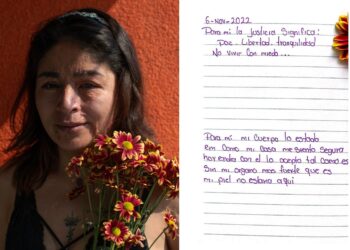 6-Nov-2022
Para mi la justicia significa:
Paz - Libertad - tranquilidad
No vivir con miedo...
Para mi mi cuerpo ha estado
em Como mi casa me siento segura
hacerda con el lo acepto tal como es
Sin mi organo mas fuerte que es
mi piel no estaria aqui